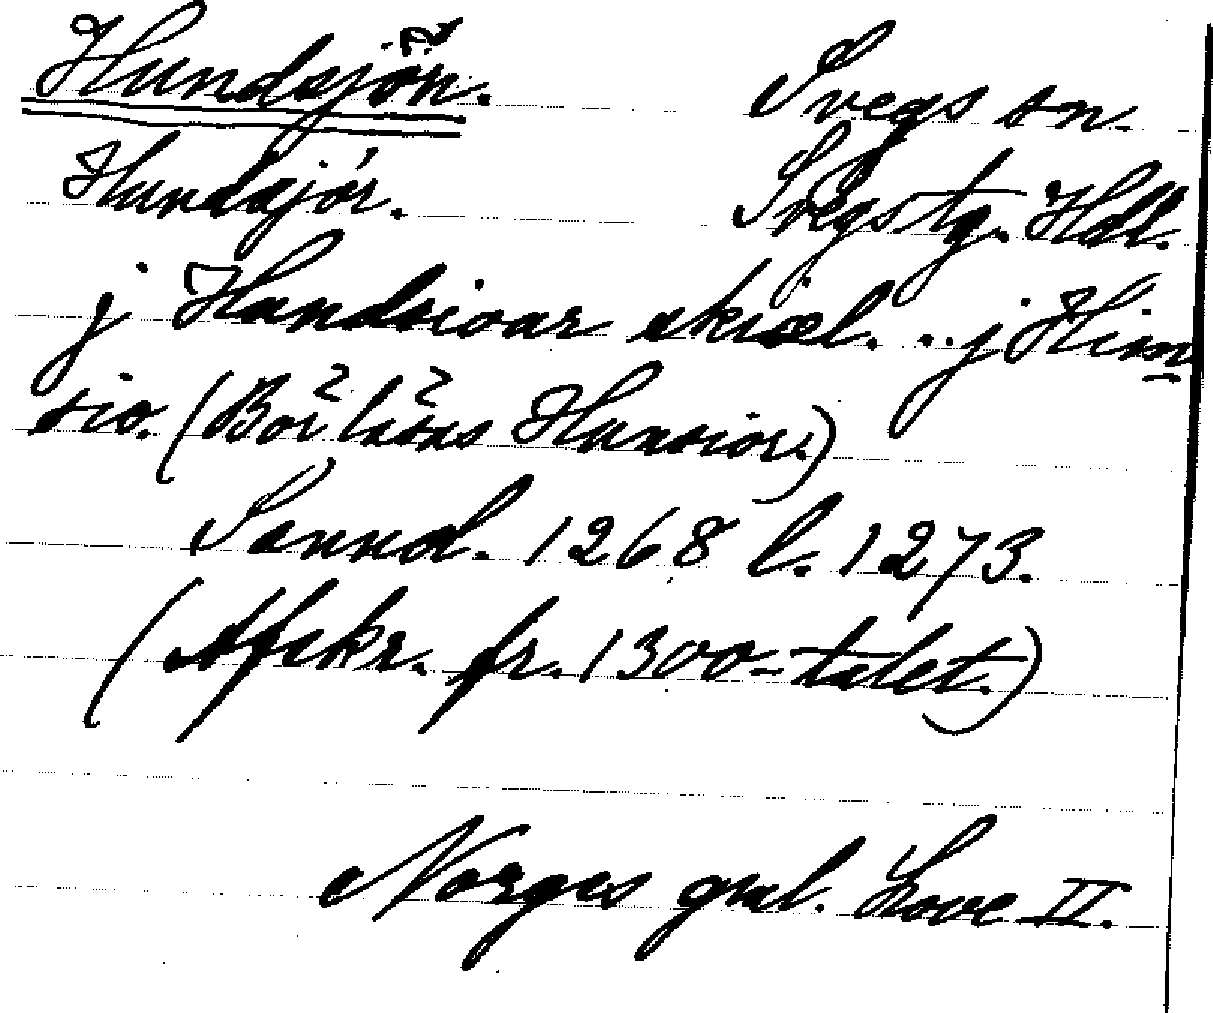 Hundsjön. Svegs sn.
Hundsjór. Svegs tg. Hdl.
j Hundsioar skiæl. .. j Him
sio. (Bör läsas Hunsior.)
Sannol. 1268 l. 1273.
(Afskr. fr. 1300-talet.)
Norges gml. Love II.